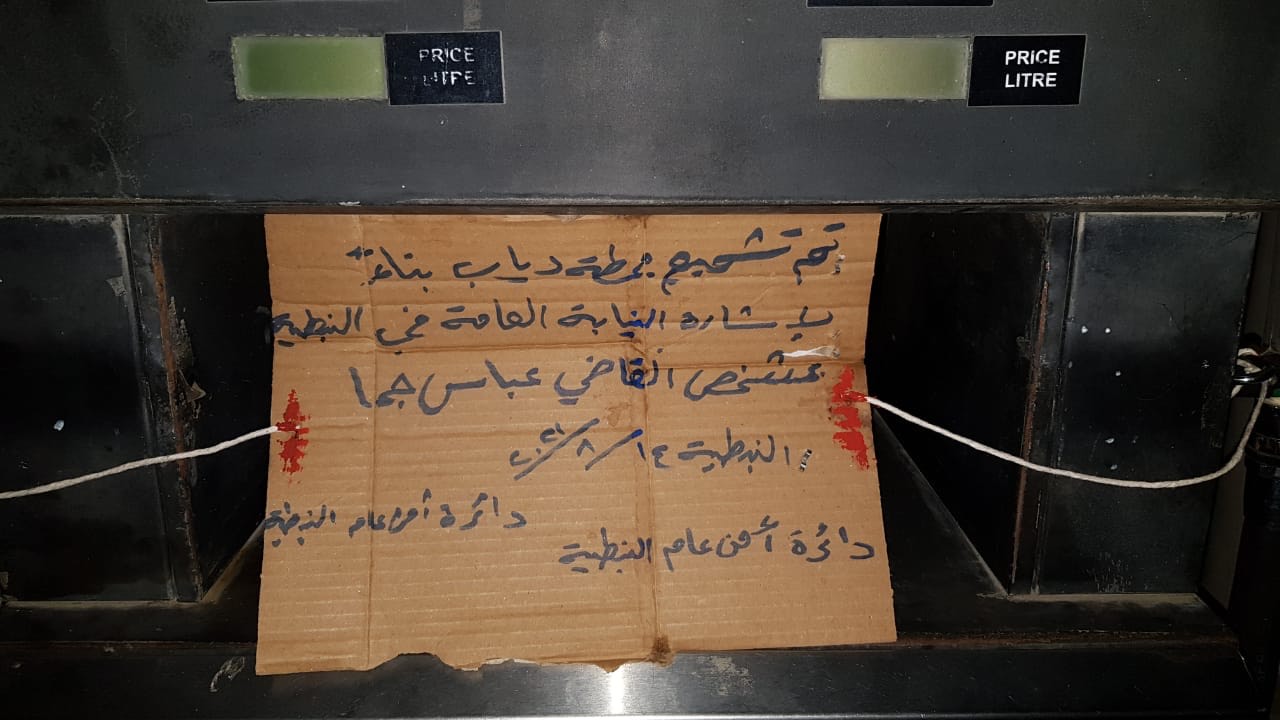 PRICE
LITRE
PRICE
LITRE
تم تشميع محطة دياب بناءً
لإشارة النيابة العامة في النبطية
بشخص القاضي عباس جحا
النبطية ١٤/٨/٢١
دائرة أمن عام النبطية
دائرة أمن عام النبطية